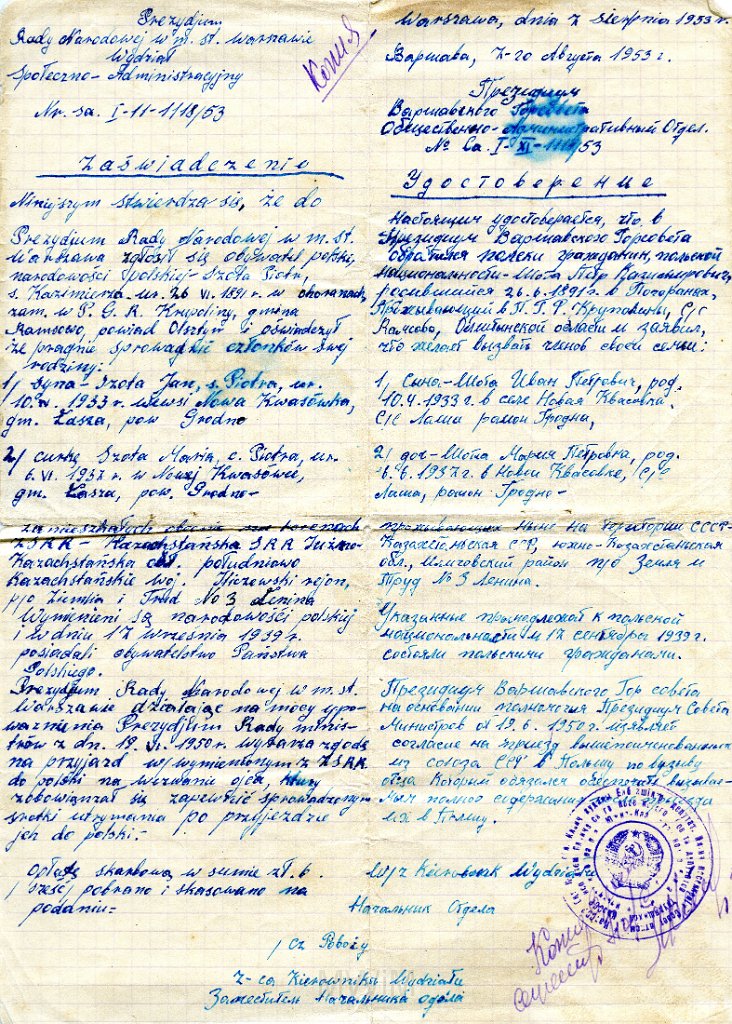 Prezydium
Rady Narodowej w m. st. Warszawie
Wydział
Społeczno-Administracyjny
Nr. sa. I-11-1118/53
Zaświadczenie
Niniejszym stwierdza się, że do
Prezydjum Rady Narodowej w m. st.
Warszawa zgłosił się obywatel polski,
narodowości polskiej - Szota Piotr,
s. Kazimierza ur. 26 VI. 1891 r. w
zam. w P. G. R. Krupoliny, gmina
Ramsowo, powiad Olsztyn i oświadczył
że pragnie sprowadzić członków swej
rodziny:
1/ syna - Szota Jan, s. Piotra, ur.
1933 r. wewsi Nowa Kwasówka,
gm. Łasza, pow Grodno
2/ curkę Szota Maria, c. Piotra, ur.
6. VI. 1937 r. w Nowej Kwasówce,
gm. Łasza, pow. Grodno-
zamieszkałych obecnie na terenach
ZSRR - Kazachstańska SRR Jużno-
Kazachstańska obł. południowo
Kazachstańskie woj. Iliczowski rejon,
p/o Ziemla i Trud No 3 Lenina
Wymienieni są narodowości polskiej
i w dniu 17 września 1939 r.
posiadali obywatelstwo Państwa
Polskiego.
Prezydjum Rady Narodowej w m. st.
Warszawie działając na mocy upo-
ważnienia Prezydjum Rady minis-
trów z dn. 19. VI. 1950 r. wyraża zgodę
na przyjazd w/wymienionym z ZSRR
do polski na wezwanie ojca, który
zobowiązał się zapewnić sprowadzonym
srotki utrzymania po przyjeździe
ich do polski.-
opłatę skarbową w sumie zł. 6.
/ sześć pobrano i skasowano na
podaniu=
Копия
Warszawa, dnia 7 sierpnia 1953 r.
Варшава, 7-го Августа 1953 г.
Президиум
Варшавского Горсовета
Общественно-Административный Отдел.
№ Са. I-XI-1118/53
Удостоверение
Настоящим удостоверается, что в
Президиум Варшавского Горсовета
обратился польски гражданин, польской
национальности - Шота Пётр Казимирович,
родившийся 26.6.1891 г. в Погоранах,
Проживающий в П.Г.Р. Круполины, с/с
Рамсево, Ольштынской области и заявил,
что желает вызвать членов своей семьи:
1/ Сына - Шота Иван Петрович, род.
10.4.1933 г. в селе Новая Квасовка.
С/С Лаша район Гродна,
2/ доч - Шота Мария Петровна, род.
6.6.1937 г. в Новой Квасовке, С/с
Лаша, район Гродно-
проживающих ныне на территории СССР-
Казахстанская ССР, южно-Казахстанская
обл., Иличовский район п/о Земля и
Труд № 3 Ленина.
Указанные принадлежат к польской
национальности и 17 сентября 1939 г.
состояли польскими гражданами.
Президиум Варшавского Гор совета
на основании полномочия Президиум Совета
Министров от 19.6.1950 г. изявляет
согласие на приезд вышепоименованных
из союза ССР в Польшу по вызову
отца Который обязался обеспечить вызывае-
мых полное содержание
их в Польшу.
w/z Kierownik Wydziału
Начальник Отдела
/ Cz Poboży
Z-ca Kierownika Wydziału
Заместитель Начальника отдела
Копия